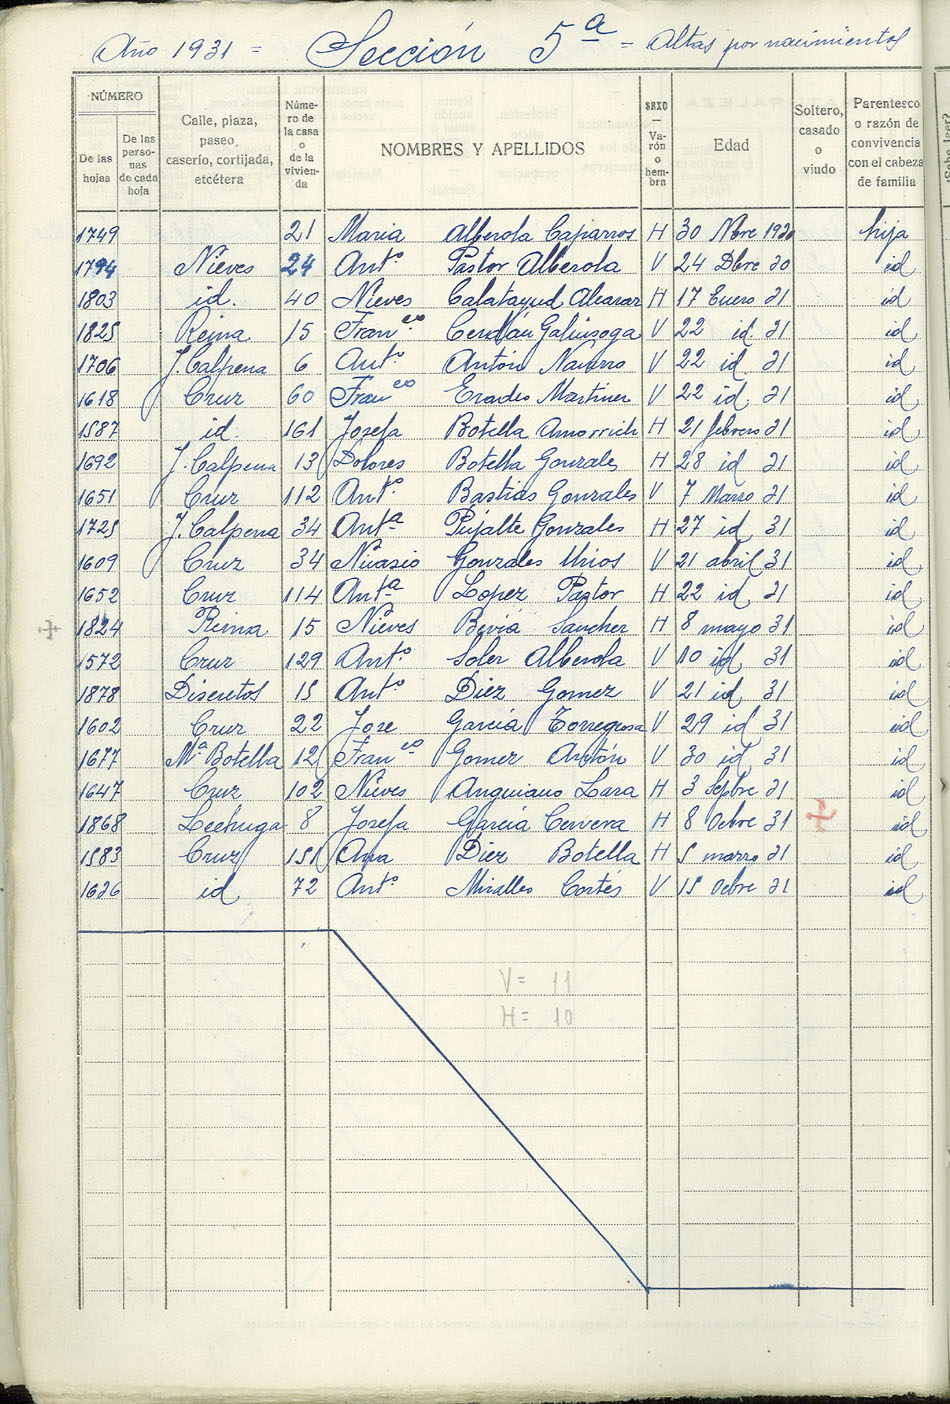 Año 1931 = Sección 5ª = Altas por nacimientos
NÚMERO
De las hojas
De las perso- nas de cada hoja
Calle, plaza, paseo, caserío, cortijada, etcétera
Núme- ro de la casa o de la vivien- da
NOMBRES Y APELLIDOS
SEXO — Va- rón o hem- bra
Edad
Soltero, casado o viudo
Parentesco o razón de convivencia con el cabeza de familia
1749 21 Maria Alberola Caparros H 30 Nbre 1930 hija
1794 Nieves 24 Antº Pastor Alberola V 24 Dbre 30 id
1803 id. 40 Nieves Calatayud Alcaraz H 17 Enero 31 id
1825 Reina 15 Franco Cerdán Galiusoga V 22 id. 31 id
1706 J. Calpena 6 Antº Antón Navarro V 22 id. 31 id
1618 Cruz 60 Franco Erades Martinez V 22 id. 31 id
1587 id. 161 Josefa Botella Amorrich H 21 febrero 31 id
1692 J. Calpena 13 Dolores Botella Gonzales H 28 id 31 id
1651 Cruz 112 Antº Bastias Gonzales V 7 Marzo 31 id
1725 J. Calpena 34 Antª Pujalte Gonzales H 27 id 31 id
1609 Cruz 34 Nicasio Gonzales Urios V 21 abril 31 id
1652 Cruz 114 Antª Lopez Pastor H 22 id 31 id
1824 Reina 15 Nieves Beviá Sanchez H 8 mayo 31 id
1572 Cruz 129 Antº Soler Alberola V 10 id 31 id
1878 Discretos 15 Antº Diez Gomez V 21 id 31 id
1602 Cruz 22 Jose García Torregrosa V 29 id 31 id
1677 Mª Botella 12 Franco Gomez Antón V 30 id 31 id
1647 Cruz 102 Nieves Anguiano Lara H 3 Sepbre 31 id
1868 Lechuga 8 Josefa García Cervera H 8 Octbre 31 id
1583 Cruz 151 Ana Diez Botella H 5 marzo 31 id
1636 id 72 Antº Miralles Cortés V 15 Octbre 31 id
V = 11
H = 10